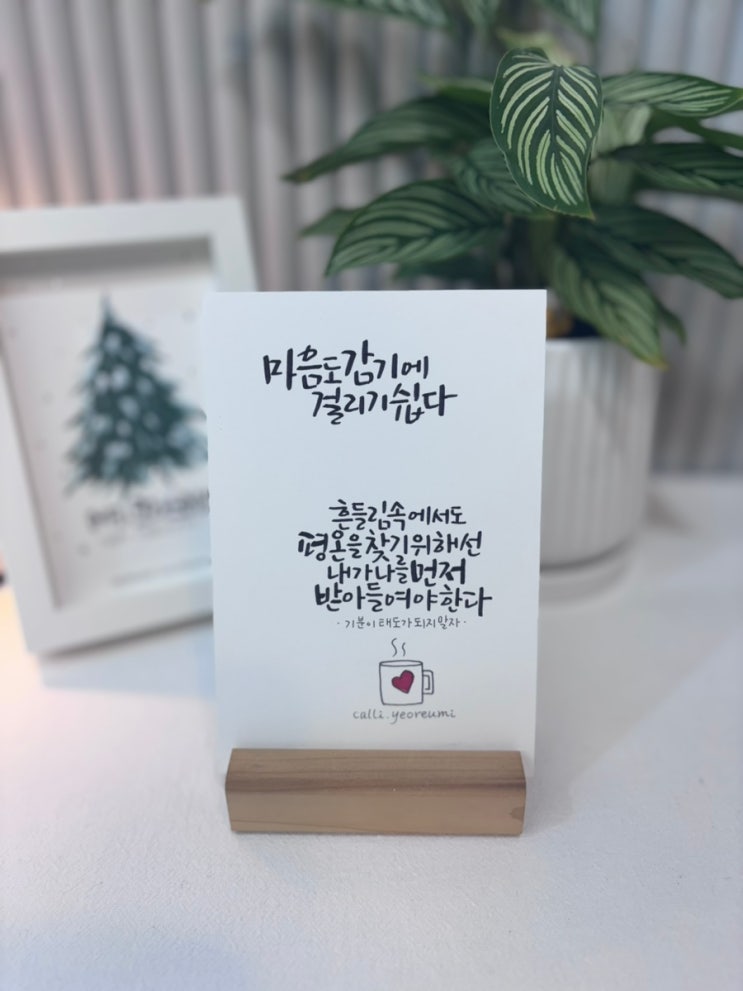 마음도 감기에
걸리기 쉽다
흔들림 속에서도
평온을 찾기 위해선
내가 나를 먼저
받아들여야 한다
· 기분이 태도가 되지 말자 ·
calli.yeoreumi